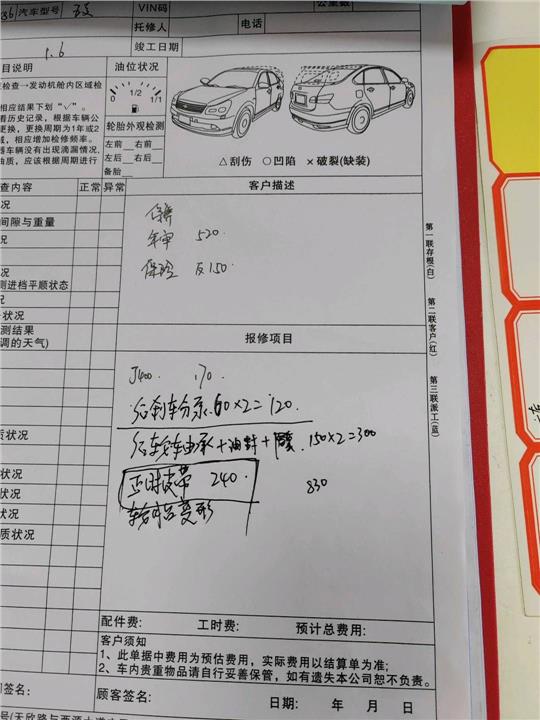 汽车型号
VIN码
公里数
托修人
电话
1.6
竣工日期
目说明
油位状况
检查→发动机舱内区域检
0 1/2 1/1
相应结果下划“√”。
看历史记录，根据车辆公
更换，更换周期为1年或2
，相应增加检修频率。
器车辆没有出现滴漏情况，
油质，应该根据周期进行
轮胎外观检测
左前 右前
左后 右后
备胎
△刮伤 ○凹陷 ×破裂(缺装)
查内容 正常 异常
客户描述
况
间隙与重量
况
测进档平顺状态
状况
测结果
调的天气)
保养
年审 520.
保险 反150.
第一联存根(白)
第二联客户(红)
第三联派工(蓝)
报修项目
J400. 170.
后刹车分泵.60×2=120.
后车轮轴承+油封+ .150×2=300
正时皮带 240.
830
变形
质状况
状况
状况
状况
质状况
状况
配件费: 工时费: 预计总费用:
客户须知
1、此单据中费用为预估费用，实际费用以结算单为准;
2、车内贵重物品请自行妥善保管，如有遗失本公司恕不负责。
司签名:
顾客签名:
日期: 年 月 日